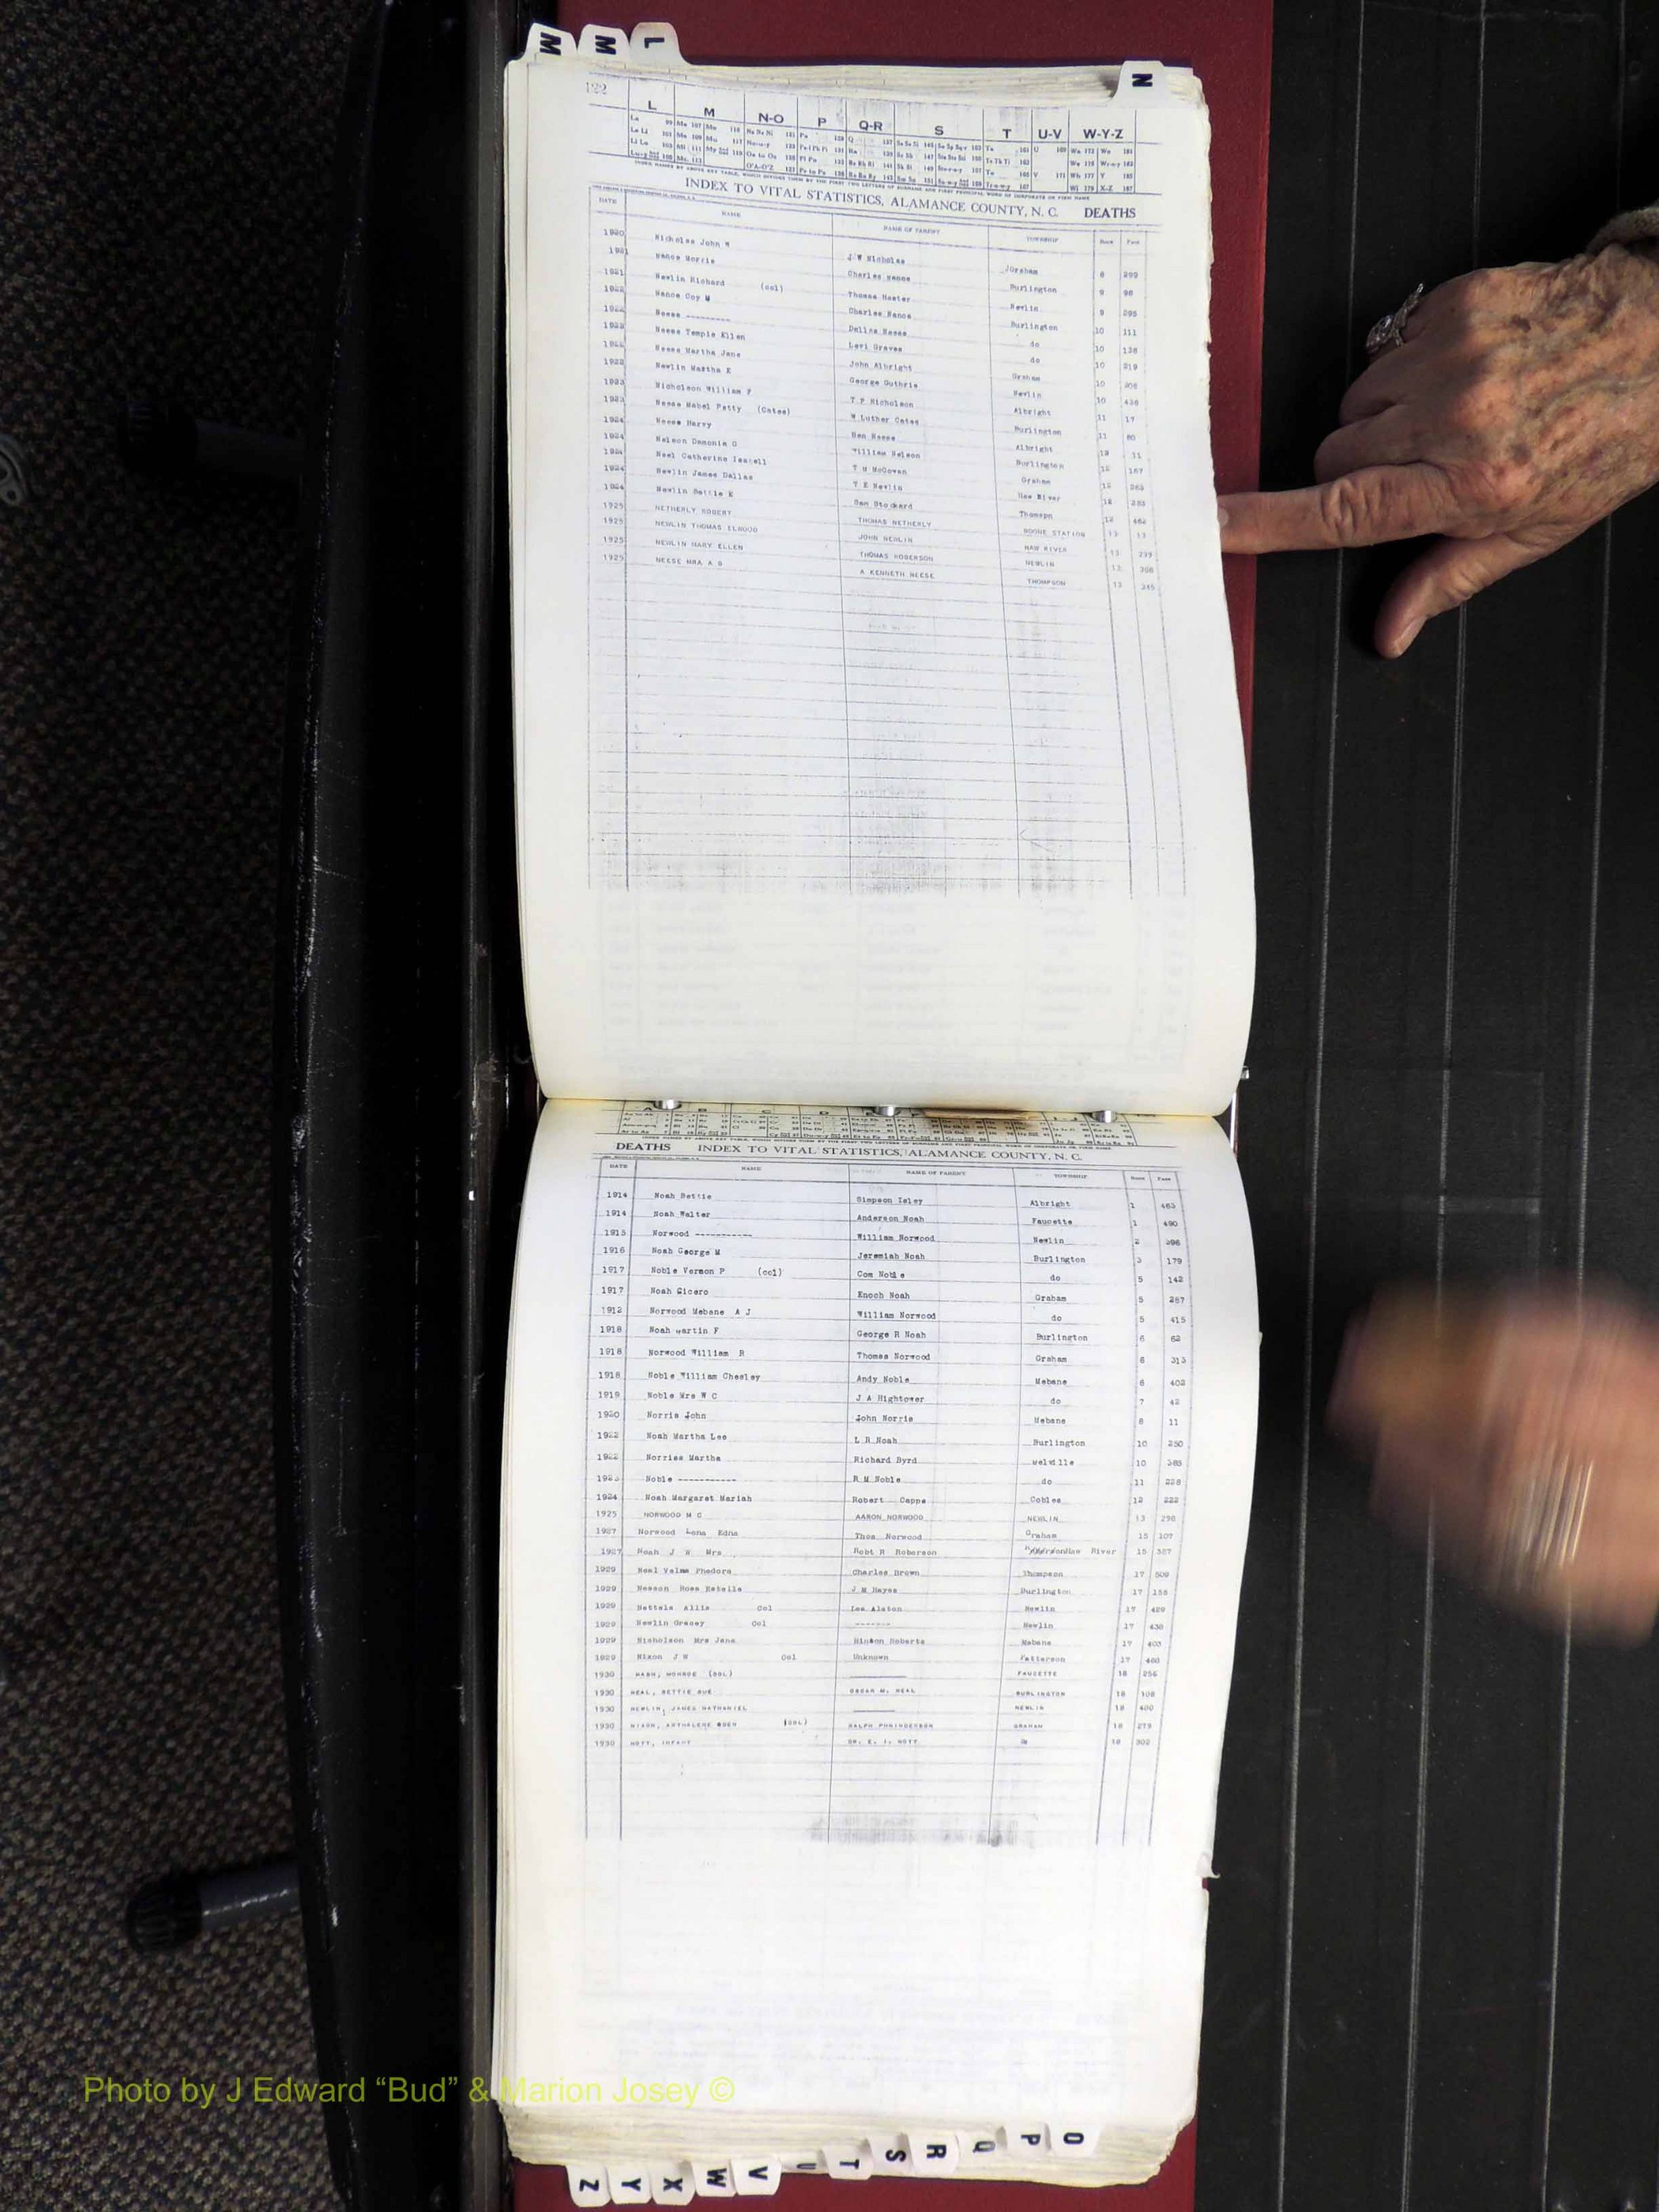 M M L
N
122
L M N-O P Q-R S T U-V W-Y-Z
INDEX TO VITAL STATISTICS, ALAMANCE COUNTY, N. C. DEATHS
DATE NAME NAME OF PARENT TOWNSHIP Book Page
1920 Nicholas John W J W Nicholas Graham 8 299
1921 Nance Morris Charles Nance Burlington 9 98
1921 Newlin Richard (col) Thomas Hester Newlin 9 295
1922 Nance Coy M Charles Nance Burlington 10 111
1922 Neese --------- Dallas Neese do 10 138
1922 Neese Temple Ellen Levi Graves do 10 219
1922 Neese Martha Jane John Albright Graham 10
1922 Newlin Martha E George Guthrie Newlin 10 436
1923 Nicholson William P T P Nicholson Albright 11 17
1923 Neese Mabel Patty (Cates) W Luther Cates Burlington 11 80
1924 Neese Harvy Ben Neese Albright 12 11
1924 Nelson Demonia G William Nelson Burlington 12 187
1924 Neel Catherine Isabell T M McGowan Graham 12
1924 Newlin James Dallas T E Newlin Haw River 12
1924 Newlin Bettie E Sam Stockard Thompsn 12 462
1925 NETHERLY ROBERT THOMAS NETHERLY BOONE STATION 13 13
1925 NEWLIN THOMAS ELWOOD JOHN NEWLIN HAW RIVER 13 239
1925 NEWLIN MARY ELLEN THOMAS ROBERSON NEWLIN 13 308
1925 NEESE MRA A G A KENNETH NEESE THOMPSON 13 345
DEATHS INDEX TO VITAL STATISTICS, ALAMANCE COUNTY, N. C.
DATE NAME NAME OF PARENT TOWNSHIP Book Page
1914 Noah Bettie Simpson Isley Albright 1 463
1914 Noah Walter Anderson Noah Faucette 1 490
1915 Norwood ----------- William Norwood Newlin 2 396
1916 Noah George M Jeremiah Noah Burlington 3 179
1917 Noble Vernon P (col) Com Noble do 5 142
1917 Noah Cicero Enoch Noah Graham 5 287
1912 Norwood Mebane A J William Norwood do 5 415
1918 Noah Martin F George R Noah Burlington 6 62
1918 Norwood William R Thomas Norwood Graham 6 313
1918 Noble William Chesley Andy Noble Mebane 6 402
1919 Noble Mrs W C J A Hightower do 7 42
1920 Norris John John Norris Mebane 8 11
1922 Noah Martha Lee L R Noah Burlington 10 250
1922 Norriss Martha Richard Byrd Melville 10 385
1923 Noble ----------- R M Noble do 11 228
1924 Noah Margaret Mariah Robert Capps Cobles 12 222
1925 NORWOOD M C AARON NORWOOD NEWLIN 13 290
1927 Norwood Lena Edna Thos Norwood Graham 15 107
1927 Noah J W Mrs Robt R Roberson Haw River 15 387
1929 Neal Velma Phedora Charles Brown Thompson 17 509
1929 Nesson Rosa Estelle J M Hayes Burlington 17 155
1929 Nettels Allis Col Lee Alston Newlin 17 429
1929 Newlin Gracey Col ------- Newlin 17 430
1929 Nicholson Mrs Jane Hinson Roberts Mebane 17 403
1929 Nixon J W Col Unknown Patterson 17 460
1930 NASH, MONROE (COL) FAUCETTE 18 256
1930 NEAL, BETTIE SUE OSCAR M. NEAL BURLINGTON 18 108
1930 NEWLIN, JAMES NATHANIEL NEWLIN 18 400
1930 NIXON, (COL) RALPH GRAHAM 18 279
1930 NOTT, INFANT DR. E. I. NOTT 18 302
Photo by J Edward “Bud” & Marion Josey ©
Z Y X W V U T S R Q P O